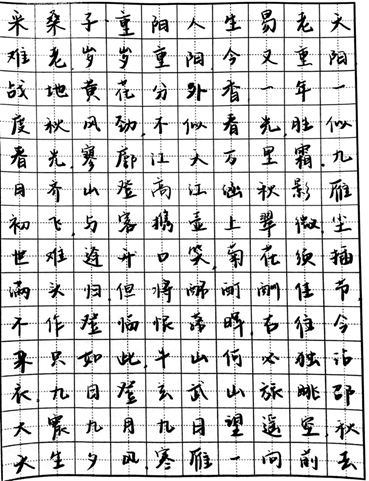 采桑子·重阳人生易老天
难老,岁岁重阳.今又重阳
战地黄花分外香.一年一
度秋风劲,不似春光,胜似
春光,寥廓江天万里霜.九
日齐山登高江涵秋影雁
初飞,与客携壶上翠微.尘
世难逢开口笑,菊花须插
满头归.但将酩酊酬佳节
不作登临恨落晖.古往今
来只如此,牛山何必独沾
衣.九日登玄武山旅眺邵
大震九月九日望遥空,秋
水生夕风.寒雁一向南去